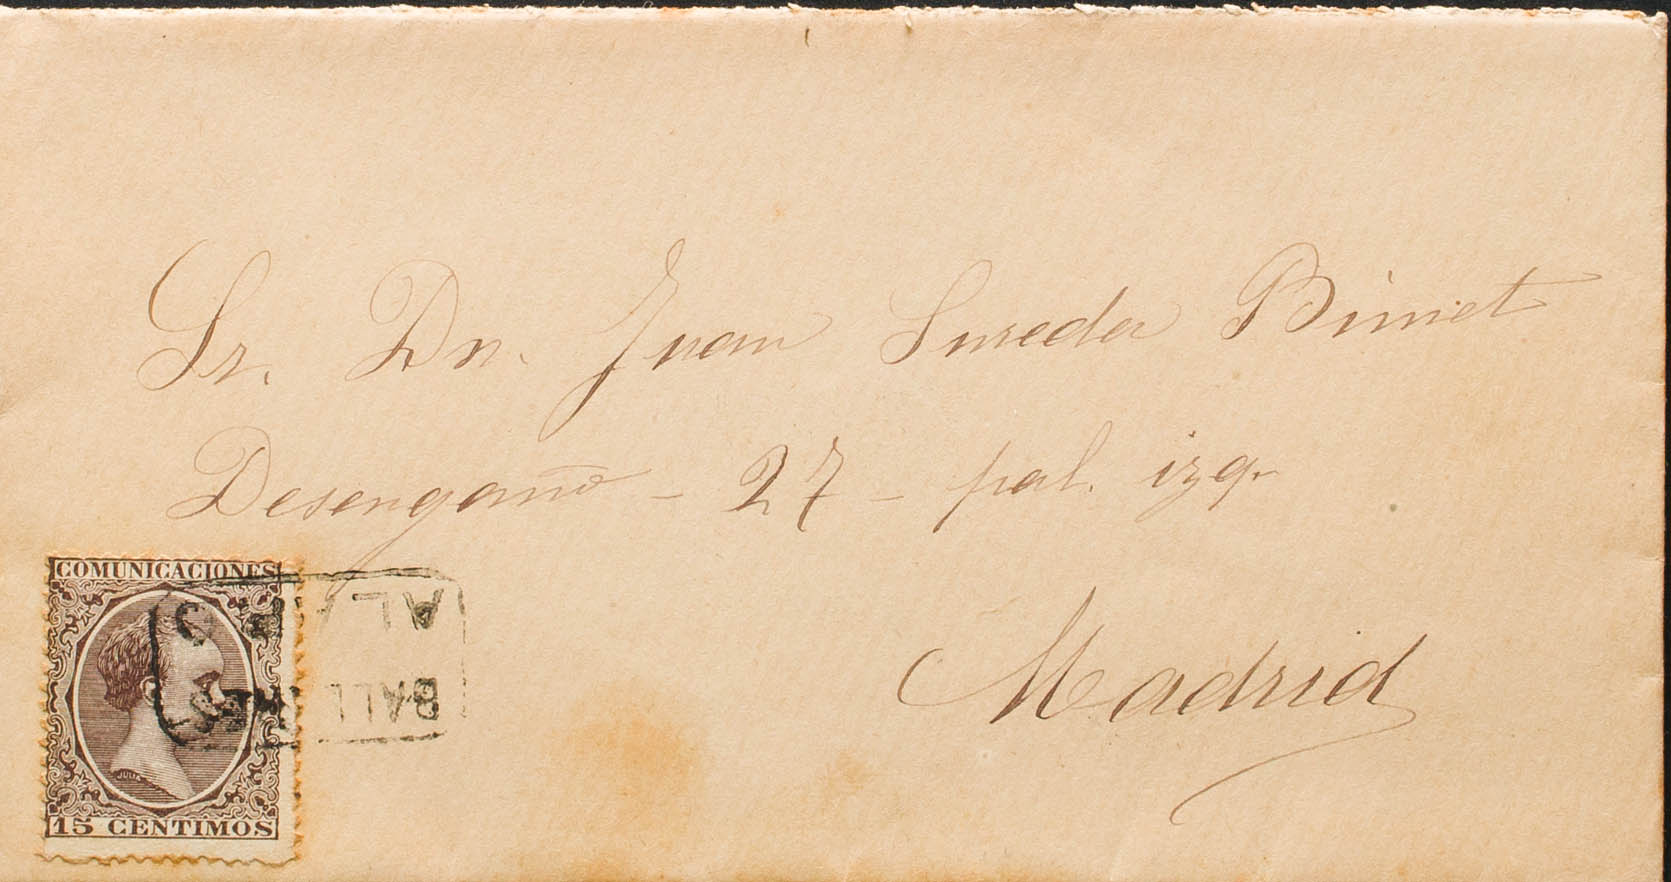 Sr. Dn. Juan Sureda Bimet
Desengaño - 27 - pral. izq.
Madrid
COMUNICACIONES
15 CENTIMOS